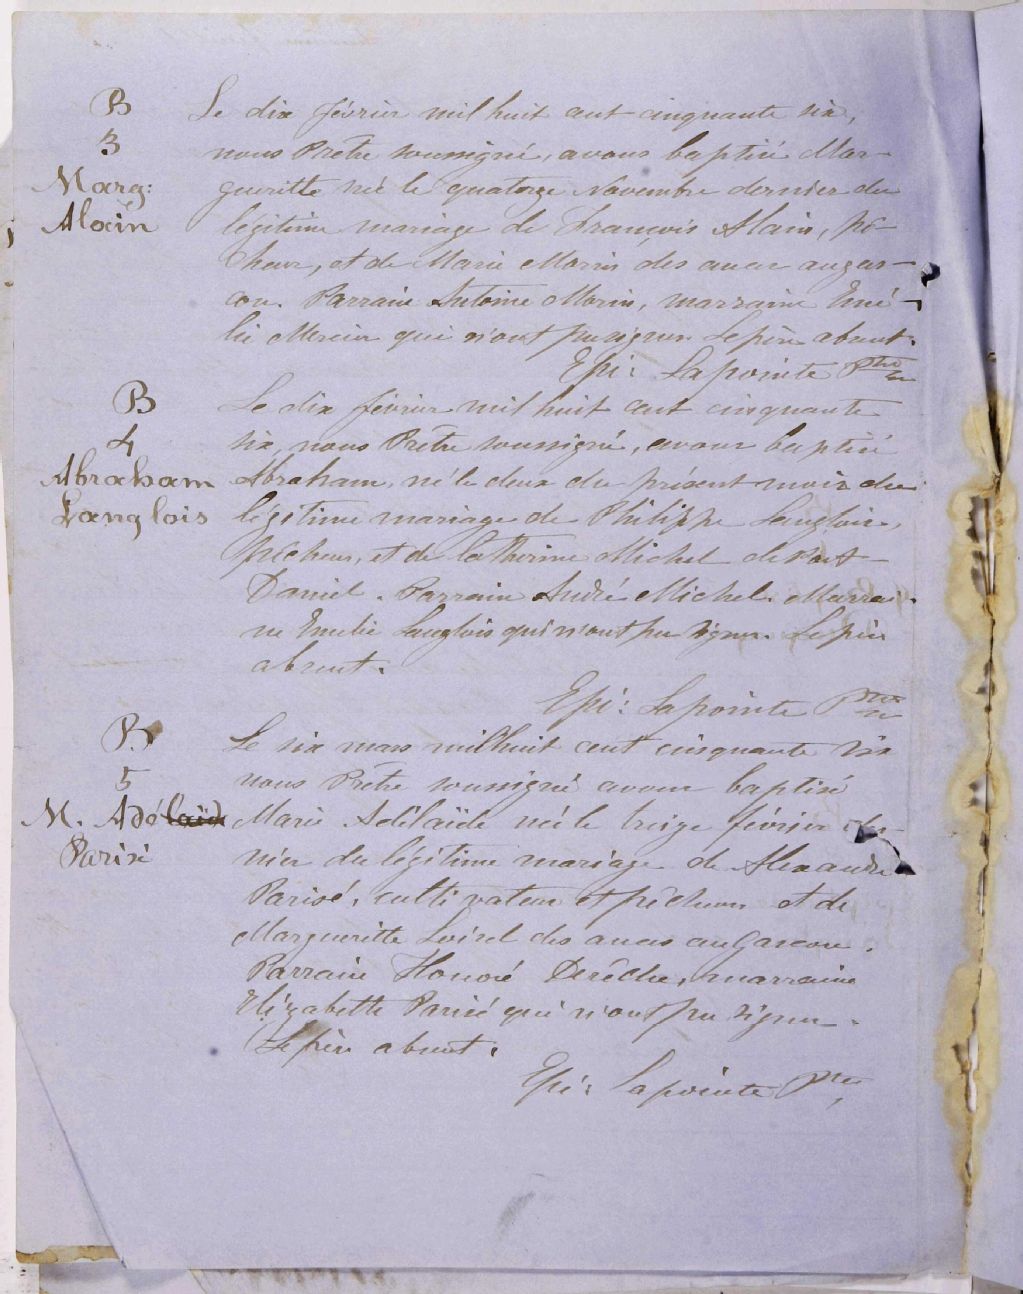 B
3
Marg:
Alain
Le dix février mil huit cent cinquante six,
nous Prêtre soussigné, avons baptisé Mar-
gueritte née le quatorze Novembre dernier du
légitime mariage de François Alain, pê-
cheur, et de Marie Morin des ances au gas-
con. Parrain Antoine Morin, marraine Emé-
lie Mercier qui n'ont pu signer. Le père absent.
Epi: Lapointe Ptre
B
4
Abraham
Langlois
Le dix février mil huit cent cinquante
six, nous Prêtre soussigné, avons baptisé
Abraham, né le deux du présent mois du
légitime mariage de Philippe Langlois,
pêcheur, et de Catherine Michel de Port
Daniel. Parrain André Michel. Marrai-
ne Emelie Langlois qui n'ont pu signer. Le père
absent.
Epi: Lapointe Ptre
B.
5
M. Adélaïde
Parisé
Le six mars mil huit cent cinquante six
nous Prêtre soussigné avons baptisé
Marie Adélaïde née le treize février der-
nier du légitime mariage de Alexandre
Parisé, cultivateur et pêcheur et de
Margueritte Loisel des ances au Gascon.
Parrain Honoré Derêche, marraine
Elizabette Parisé qui n'ont pu signer.
Le père absent.
Epi: Lapointe Ptre,